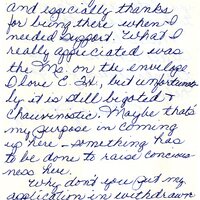 and especially thanks
for being there when I
needed support. What I
really appreciated was
the Ms. on the envelope.
I love C. but unfortunate
ly it is still bigoted +
chauvinistic. Maybe that's
my purpose in coming
up here - something has
to be done to raise concious-
ness here.
Why don't you put my
application in withdrawn